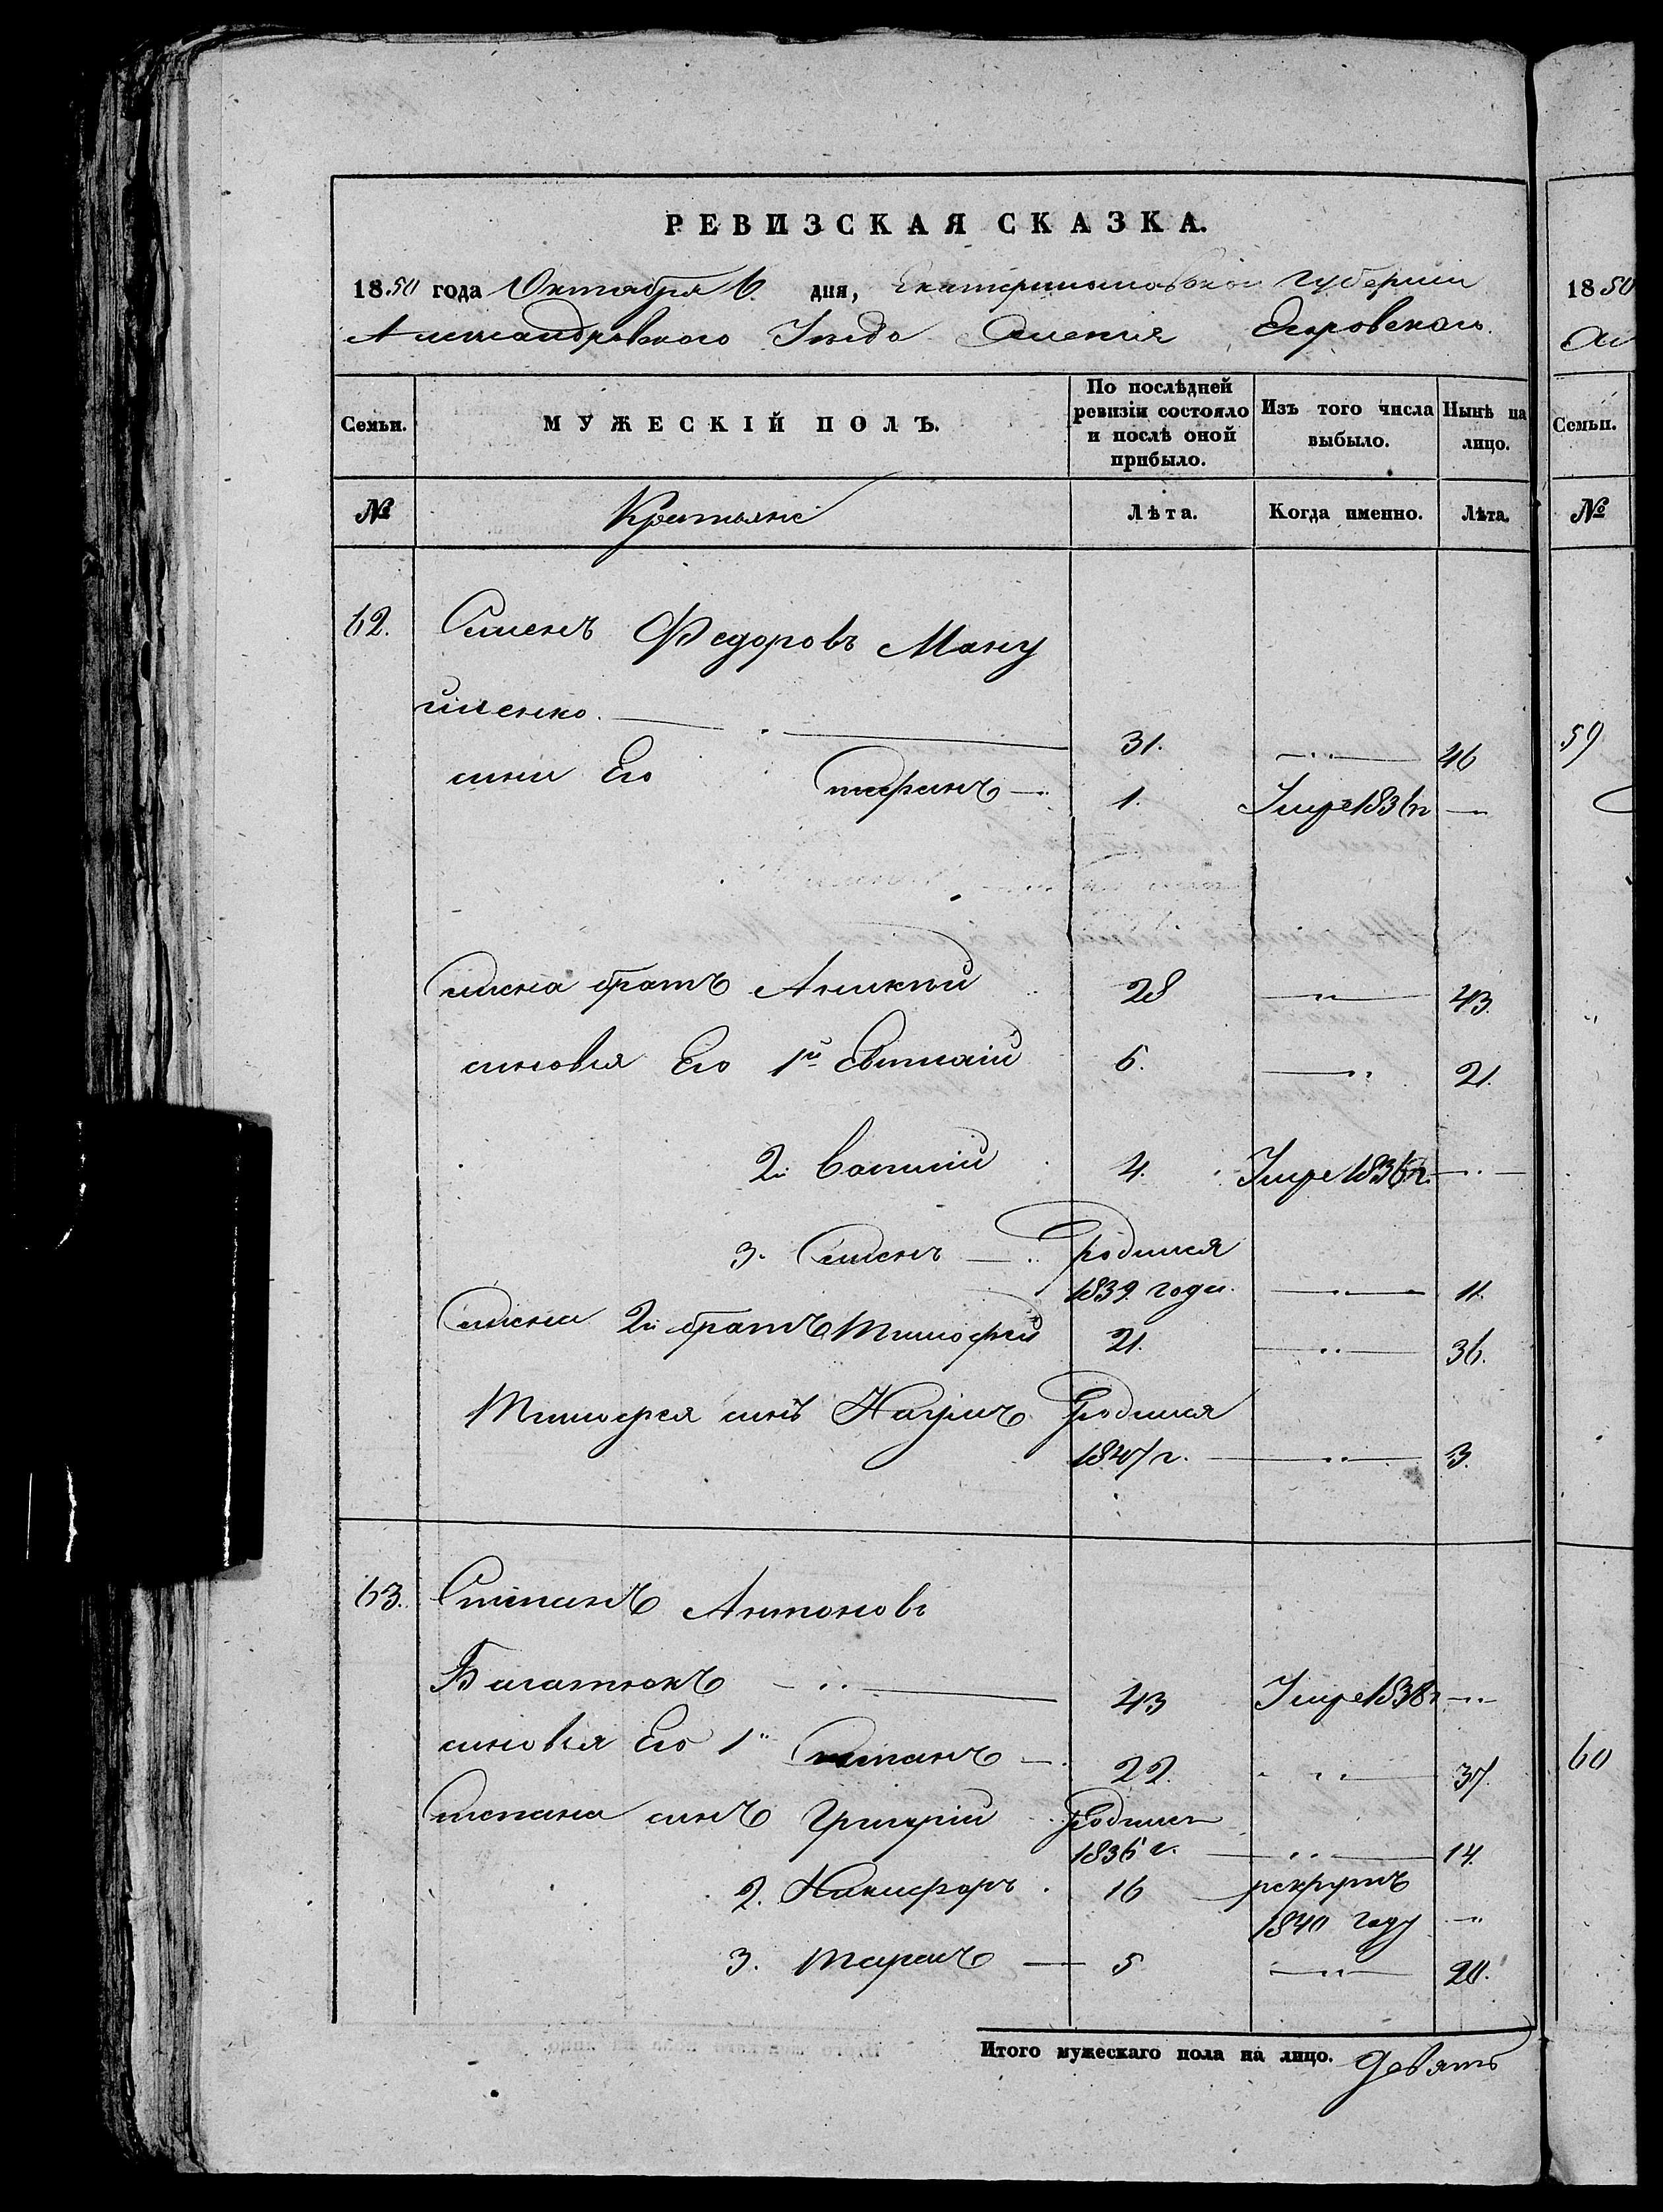 РЕВИЗСКАЯ СКАЗКА.
1850 года Октября 6. дня, Екатеринославской губернии
Александровского Уезда Селения Егоровского.
Семьи. МУЖЕСКІЙ ПОЛЪ. По послѣдней ревизіи состояло и послѣ оной прибыло. Изъ того числа выбыло. Нынѣ на лицо.
№ Крестьяне Лѣта. Когда именно. Лѣта.
62. Семенъ Федоровъ Ману
йленко. 31. 46
сынъ Его 1. Умре 1836 г
Семена братъ Аникѣй 28 43.
сыновья Его 1й 6. 21.
2й Василій 4. Умре 1836 г.
3. Семенъ родился
1839 года. 11.
Семена 2й братъ Тимофей 21. 36.
Тимофея сынъ Наумъ родился
1847 г. 3.
63. Степанъ Антоновъ
43 Умре 1838 г
сыновья Его 1й Степанъ 22. 37.
Степана сынъ Григорій родился
1836 г. 14.
2. Никифоръ 16 рекрутъ
1840 году
3. Тарасъ 5 20.
Итого мужескаго пола на лицо. Девять
1850
Семьи.
№
59
60